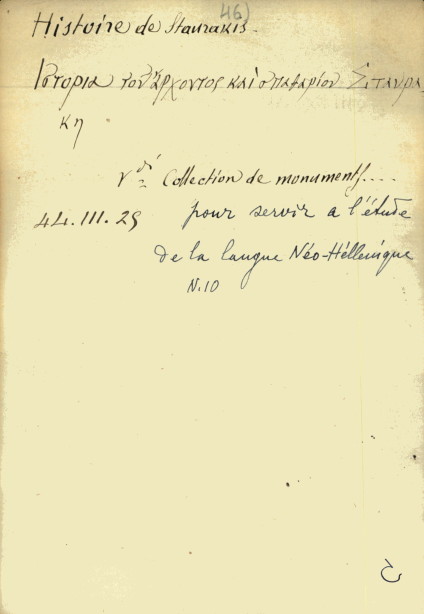 46)
Histoire de Staurakis.
Ιστορια του άρχοντος και σπαθαρίου Σταυρα
κη
V.di Collection de monuments....
44.III.25 pour servir a l'étude
de la langue Néo-Héllenique
N.10